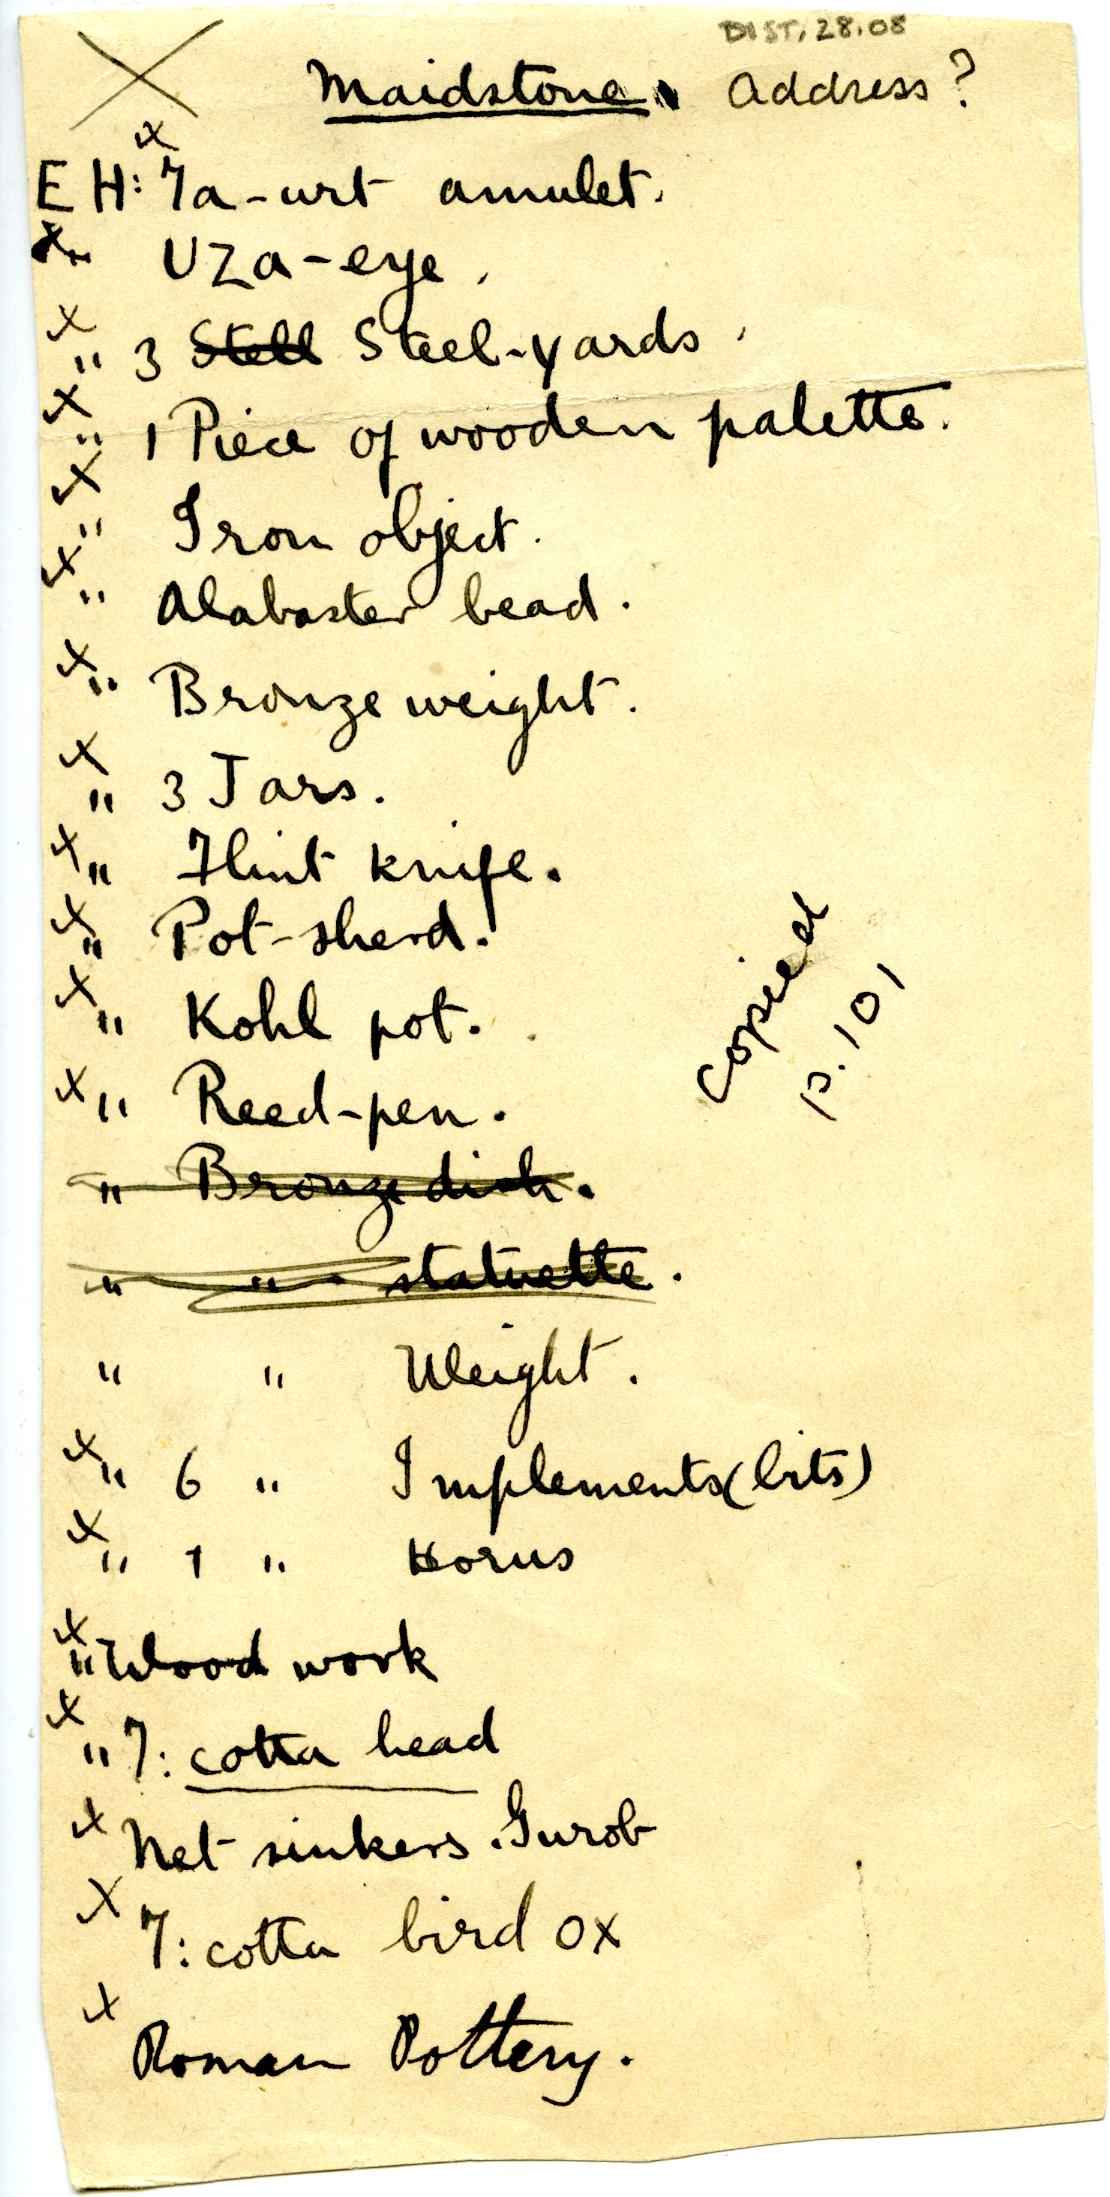 DIST. 28.08
Maidstone. Address?
x
E H: Ta-urt amulet.
x " Uza-eye.
x " 3 Stell Steel-yards.
x " 1 Piece of wooden palette.
x " Iron object.
x " Alabaster bead.
x " Bronze weight.
x " 3 Jars.
x " Flint knife.
x " Pot-sherd.
x " Kohl pot.
x " Reed-pen.
" Bronze dish.
" " statuette.
" " Weight.
x " 6 " Implements (bits)
x " 1 " Horus
x " Wood work
x " T: cotta head
x Net sinkers. Gurob
x T: cotta bird ox
x Roman Pottery.
copied
p. 101